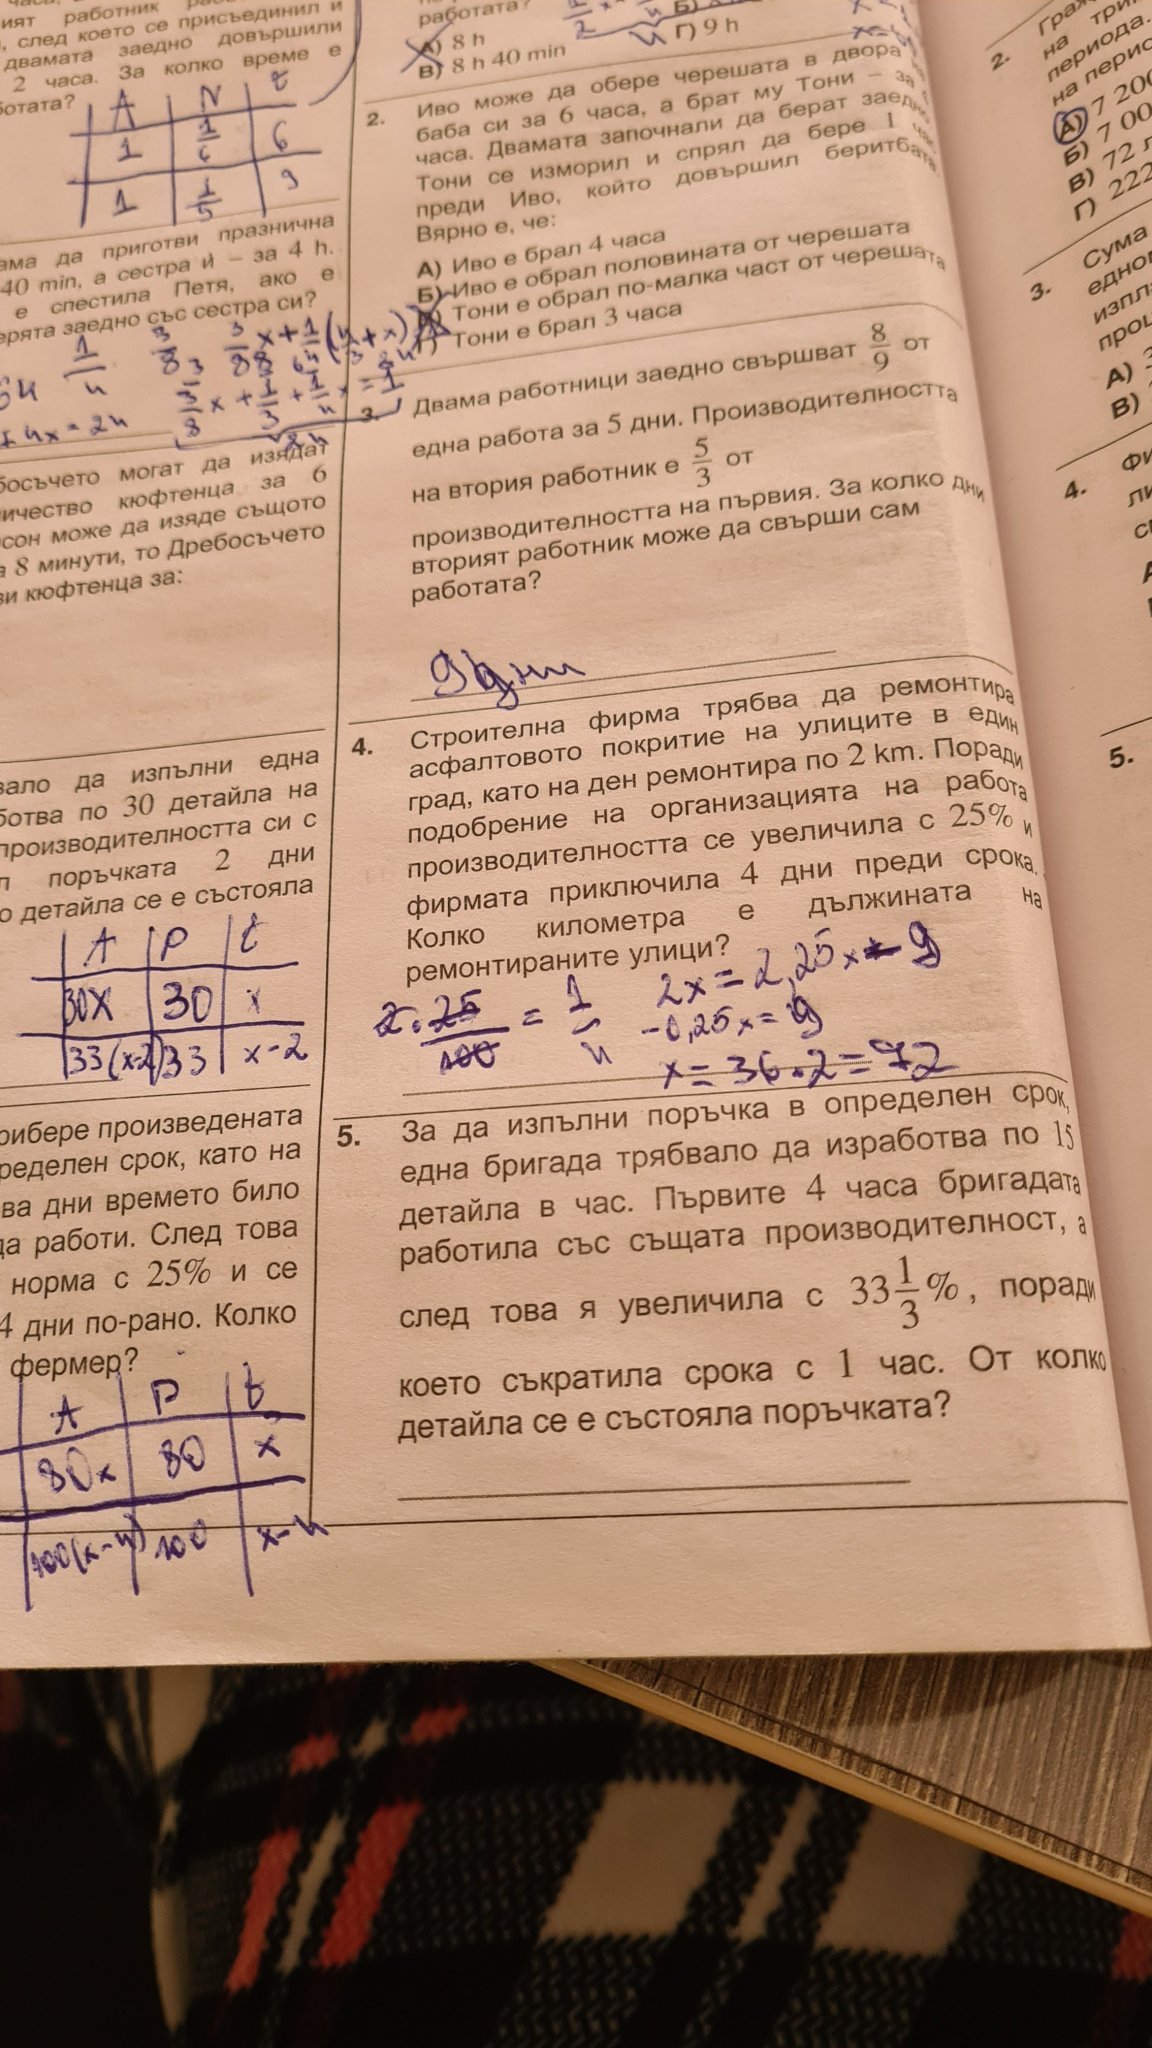 ият работник
, след което се присъединил и
двамата заедно довършили
2 часа. За колко време е
ботата?
A N t
1 1/6 6
1 1/5 9
ама да приготви празнична
40 min, а сестра ѝ – за 4 h.
е спестила Петя, ако е
ерята заедно със сестра си?
1/4
+ 4x = 24
босъчето могат да изядат
личество кюфтенца за 6
сон може да изяде същото
а 8 минути, то Дребосъчето
зи кюфтенца за:
вало да изпълни една
ботва по 30 детайла на
производителността си с
л поръчката 2 дни
о детайла се е състояла
A P t
30x 30 x
33(x-2) 33 x-2
рибере произведената
ределен срок, като на
ва дни времето било
да работи. След това
норма с 25% и се
4 дни по-рано. Колко
фермер?
A P t
80x 80 x
100(x-4) 100 x-4
работата?
А) 8 h
В) 8 h 40 min
Г) 9 h
2. Иво може да обере черешата в двора
баба си за 6 часа, а брат му Тони – за
часа. Двамата започнали да берат заедно
Тони се изморил и спрял да бере 1 час
преди Иво, който довършил беритбата.
Вярно е, че:
А) Иво е брал 4 часа
Б) Иво е обрал половината от черешата
Тони е обрал по-малка част от черешата
Г) Тони е брал 3 часа
3. Двама работници заедно свършват 8/9 от
една работа за 5 дни. Производителността
на втория работник е 5/3 от
производителността на първия. За колко дни
вторият работник може да свърши сам
работата?
9 дни
4. Строителна фирма трябва да ремонтира
асфалтовото покритие на улиците в един
град, като на ден ремонтира по 2 km. Поради
подобрение на организацията на работа
производителността се увеличила с 25% и
фирмата приключила 4 дни преди срока.
Колко километра е дължината на
ремонтираните улици?
2x = 2,25x - 9
2 . 25/100 = 1/4
-0,25x = 9
x = 36 . 2 = 72
5. За да изпълни поръчка в определен срок,
една бригада трябвало да изработва по 15
детайла в час. Първите 4 часа бригадата
работила със същата производителност, а
след това я увеличила с 33 1/3 %, поради
което съкратила срока с 1 час. От колко
детайла се е състояла поръчката?
2. 
на три
периода.
на перио
А) 7 200
Б) 7 00
В) 72 л
Г) 222
3. Сума
едно
изпл
проц
А)
В)
4. Фи
ли
5.